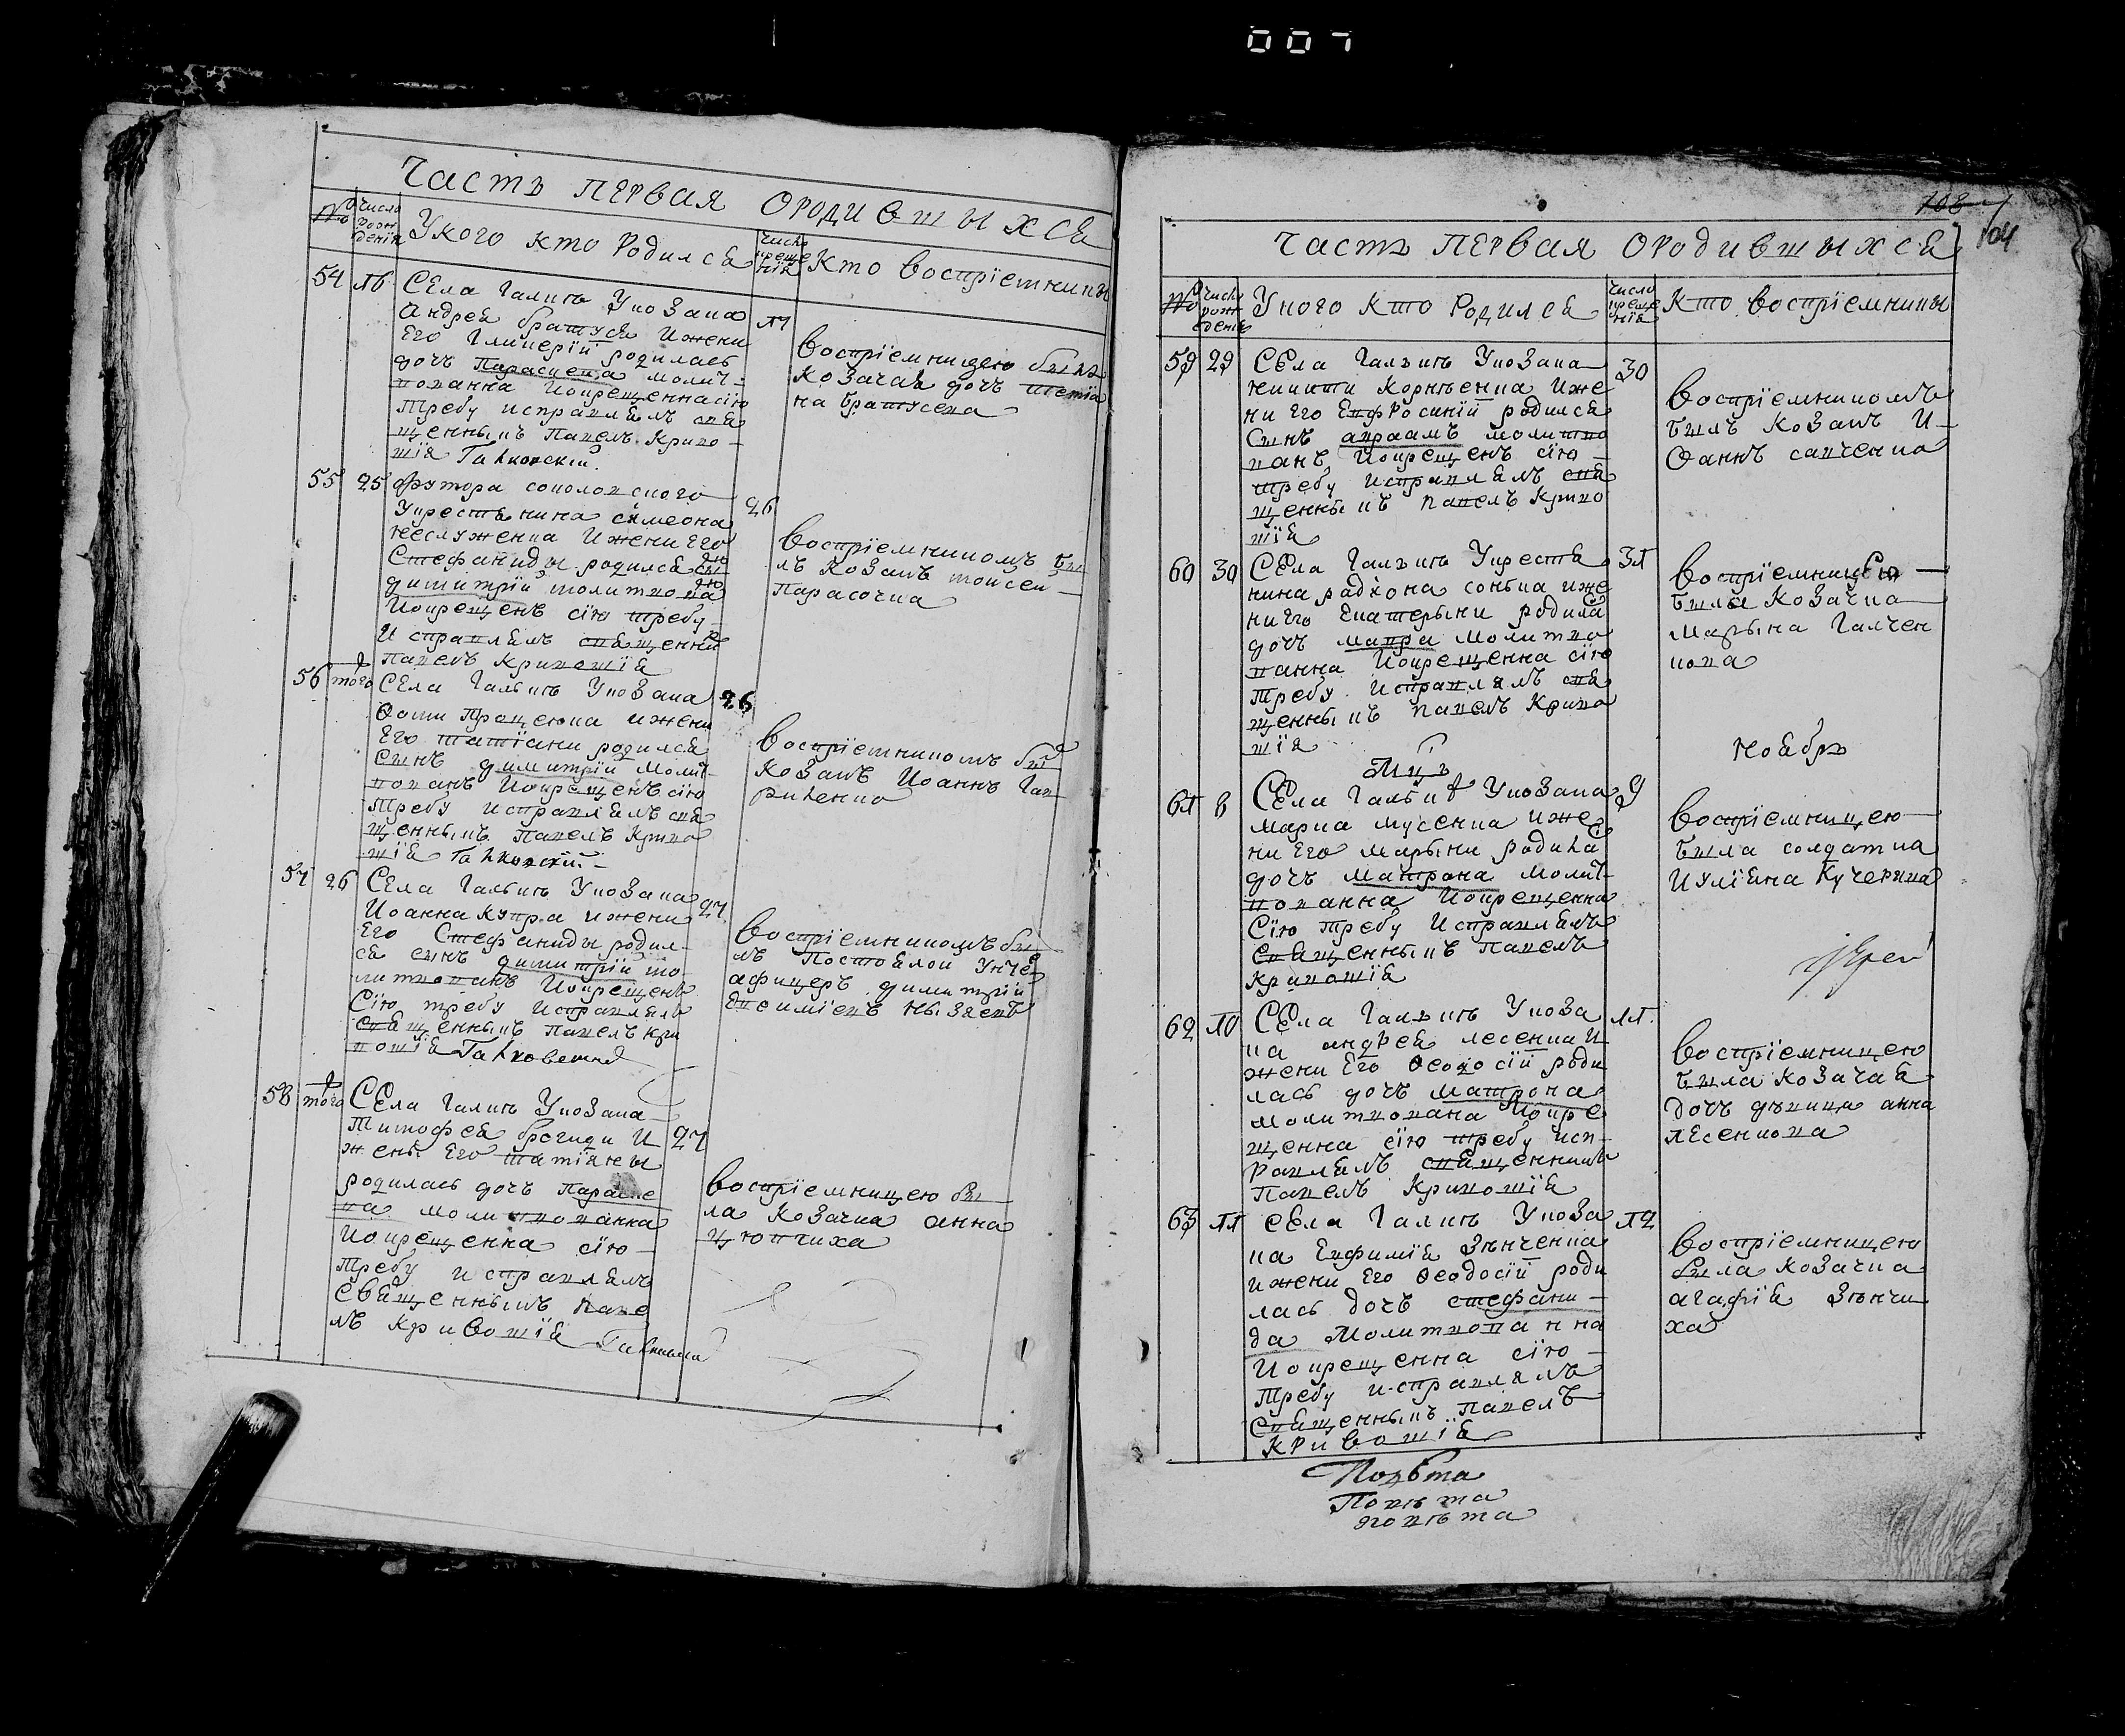 007
Часть первая ородившыхся
№ число рожденія
У кого кто родился
число крещенія
Кто воспріемники
54 16
Села Галить Укозака
Андрея братуся Ижени
Его Гликерїи родилась
дочь Параскева молит-
вованна Икрещеннасїю
Требу исправлялъ свя
щенныкъ Павелъ Криво
шїя
17
воспріемницею была
Козачая дочь
на братусева
55 25
футора соколовского
Укрестьянина симеона
неслуженка Ижени Его
Стефаниды родился сынъ
димитрїй молитвова
Икрещенъ сїю требу
Исправлялъ священни
Павелъ Кривошїя
26
воспріемникомъ бы
лъ Козакъ мойсей
Парасочка
56 того
Села Галить Укозака
Ѳоми Працюка ижени
Его татїани родился
сынъ димитрїй молит
вованъ Икрещенъ сїю
Требу исправлялъ свя
щенныкъ Павелъ Криво
шїя
26
воспріемникомъ был
Козакъ Иоаннъ Гав
риленко
57 26
Села Галить Укозака
Иоанна Купра ижени
Его Стефаниды родил-
ся сынъ димитрїй мо
литвованъ Икрещенъ
Сїю требу Исправлялъ
священныкъ Павелъ кри
вошїя
27
воспріемникомъ бы
лъ Постоялой Унте
афицеръ димитрїй
58 того
Села Галить Укозака
Тимофея брогиди И
жены Его татїяны
родилась дочь Параске
ва молитвованна
Икрещенна сїю
Требу исправлялъ
Священныкъ Паве
лъ Кривошїя
27
воспріемницею бы
ла Козачка анна
Цюпчиха
108
104
Часть первая ородившыхся
№ число рожденія
У кого кто Родился
число крещенія
Кто воспріемники
59 29
Села Галить Укозака
никити Корнѣенка Иже
ни Его Евфросинїи родился
сынъ авраамъ молитво
ванъ Икрещенъ сїю
требу исправлялъ свя
щенныкъ Павелъ Криво
шїя
30
воспріемникомъ
былъ Козакъ И-
Оаннъ савченко
60 30
Села Галить Укрестя
нина радїона сонька иже
ни его Екатерыни родила
дочь мавра молитво
ванна Икрещенна сїю
Требу исправлялъ свя
щенныкъ Павелъ Криво
шїя
31
воспріемницею
была Козачка
Марына Галчен
кова
Мцъ
ноябрь
61 8
Села Галить Укозака
марка мусенка иже
ни Его Марыни родила
дочь матрона молит-
вованна Икрещенна
Сїю требу Исправлялъ
священныкъ Павелъ
Кривошїя
9
воспріемницею
была солдатка
Иулїяна Кучерква
Іерей
62 10
Села Галить Укоза
ка андрея лесенка И
жени Его Ѳеодосїи роди
лась дочь матрона
молитвована Икре
щенна сїю требу исп-
равлялъ священныкъ
Павелъ Кривошїя
11
воспріемницею
была козачая
дочь дѣвица анна
лесенкова
63 11
села Галить Укоза
ка Евфимїя Зѣнченка
ижени Его Ѳеодосїи роди
лась дочь стефани-
да Молитвованна
Икрещенна сїю
Требу исправлялъ
священныкъ Павелъ
Кривошїя
12
воспріемницею
была козачка
агафїя Зѣнчи
ха